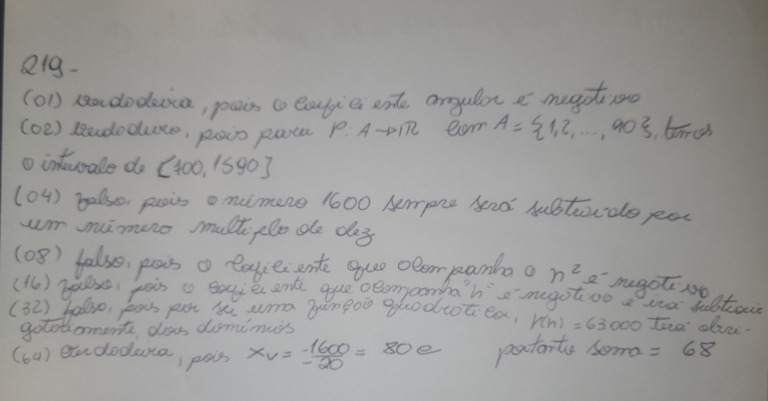 219-
(01) verdadeira, pois o coeficiente angular é negativo
(02) verdadeiro, pois para P: A→IR com A = {1,2, ..., 90}, temos
o intervalo de [700, 1590]
(04) falso, pois o número 1600 sempre será subtraido por
um número multiplo de dez
(08) falso, pois o coeficiente que acompanha o n² é negativo
(16) falso, pois o coeficiente que acompanha "n" é negativo e irá subtrair
(32) falso, pois por ser uma função quadratica, r(n) = 63000 terá obri-
gatoriamente dois dominios
(64) verdadeira, pois Xv = -1600/-20 = 80 e portanto soma = 68